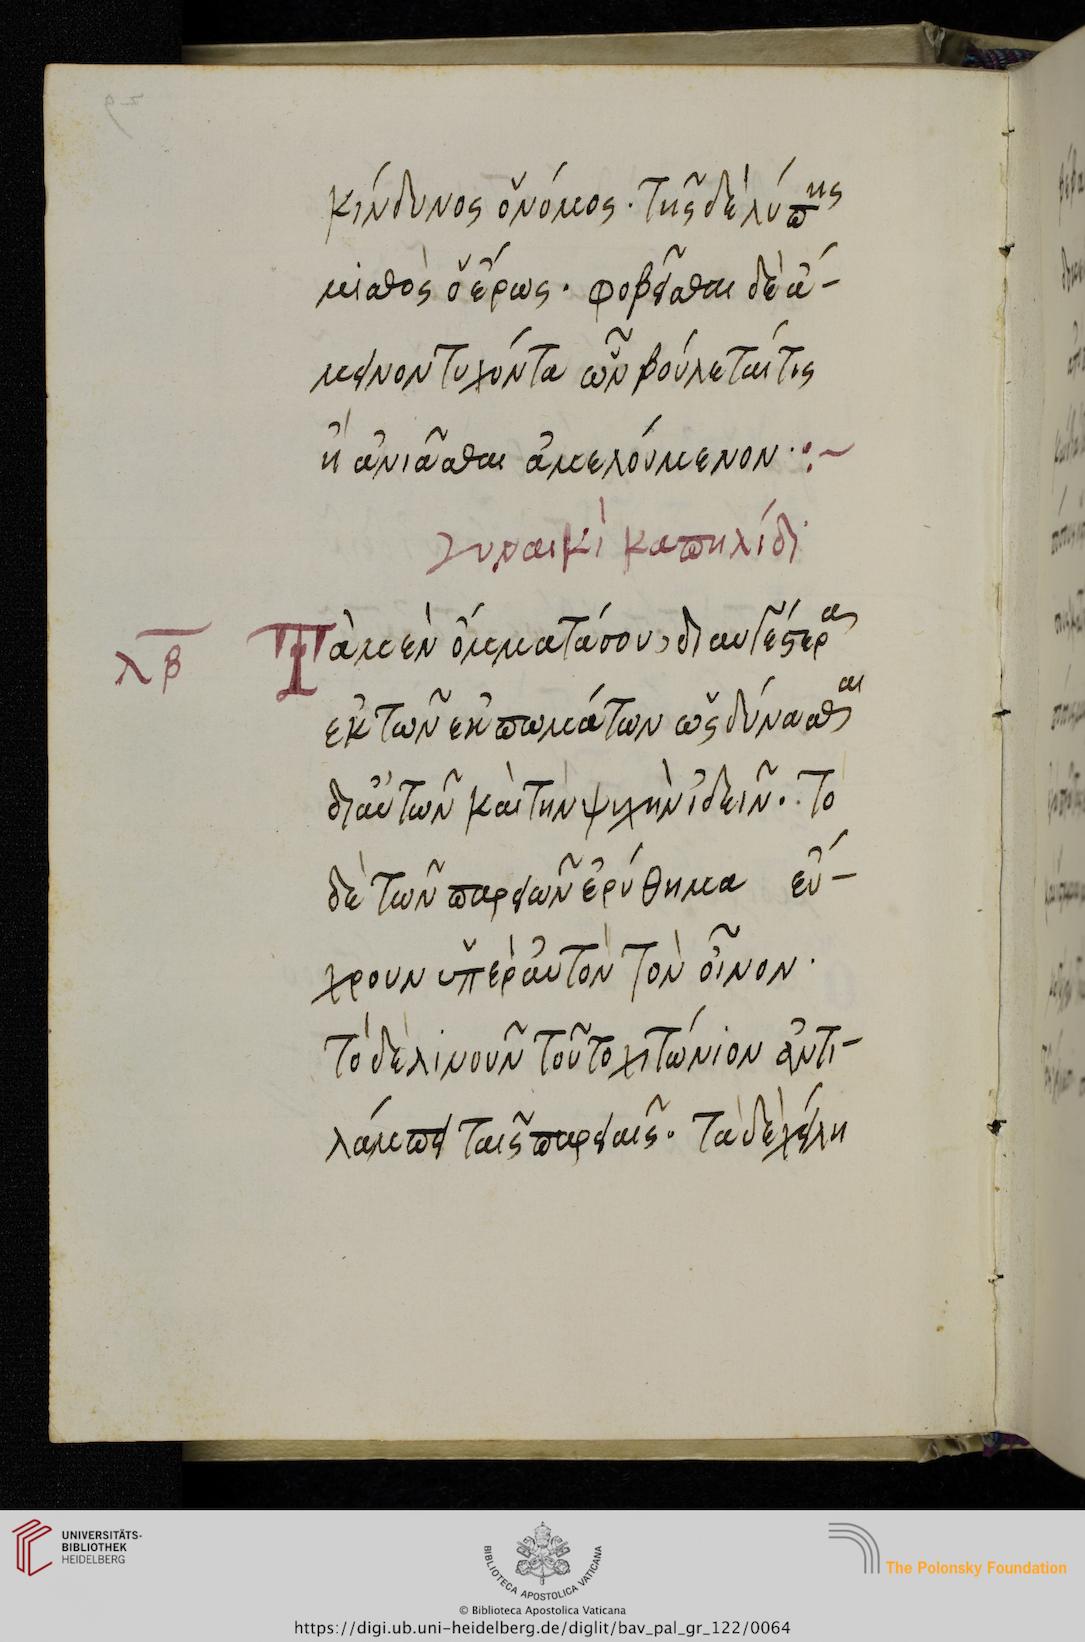 κίνδυνος ὁ νόμος · τῆς δὲ λύπης
μισθὸς ὁ ἔρως · φοβεῖσθαι δὲ ἄ-
μεινον τυχόντα ὧν βούλεταί τις
ἢ ἀνιᾶσθαι ἀμελούμενον · :~
γυναικὶ καπηλίδι
λβ Τὰ μὲν ὄμματά σου διαυγέστερα
ἐκ τῶν ἐκπωμάτων ὡς δύνασθαι
δι' αὐτῶν καὶ τὴν ψυχὴν ἰδεῖν · τὸ
δὲ τῶν παρειῶν ἐρύθημα εὔ-
χρουν ὑπὲρ αὐτὸν τὸν οἶνον ·
τὸ δὲ λινοῦν τοῦτο χιτώνιον ἀντι-
λάμπει ταῖς παρειαῖς · τὰ δὲ χείλη
UNIVERSITÄTS-
BIBLIOTHEK
HEIDELBERG
BIBLIOTECA APOSTOLICA VATICANA
The Polonsky Foundation
© Biblioteca Apostolica Vaticana
https://digi.ub.uni-heidelberg.de/diglit/bav_pal_gr_122/0064